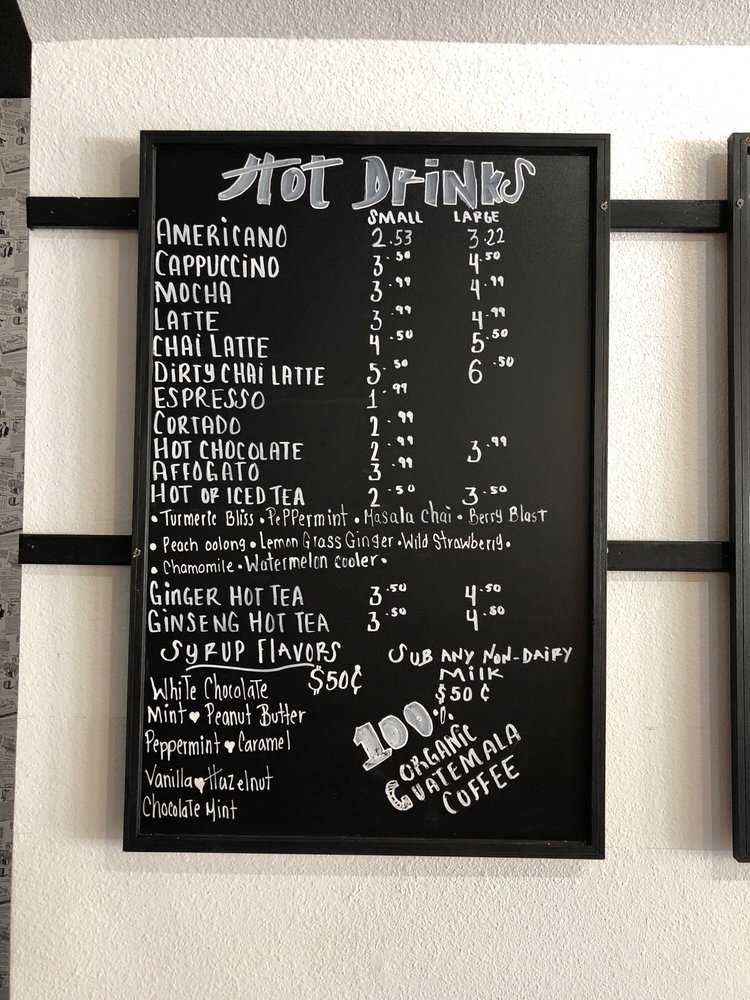 Hot Drinks
SMALL LARGE
AMERICANO 2.53 3.22
CAPPUCCINO 3.50 4.50
MOCHA 3.99 4.99
LATTE 3.99 4.99
CHAI LATTE 4.50 5.50
DIRTY CHAI LATTE 5.50 6.50
ESPRESSO 1.99
CORTADO 2.99
HOT CHOCOLATE 2.99 3.99
AFFOGATO 3.99
HOT OR ICED TEA 2.50 3.50
• Turmeric Bliss • Peppermint • Masala Chai • Berry Blast
• Peach oolong • Lemon Grass Ginger • Wild Strawberry •
• Chamomile • Watermelon cooler •
GINGER HOT TEA 3.50 4.50
GINSENG HOT TEA 3.50 4.50
SYRUP FLAVORS $50¢
White Chocolate
Mint ♥ Peanut Butter
Peppermint ♥ Caramel
Vanilla ♥ Hazelnut
Chocolate Mint
SUB ANY NON-DAIRY
MILK
$50¢
100%
ORGANIC
GUATEMALA
COFFEE